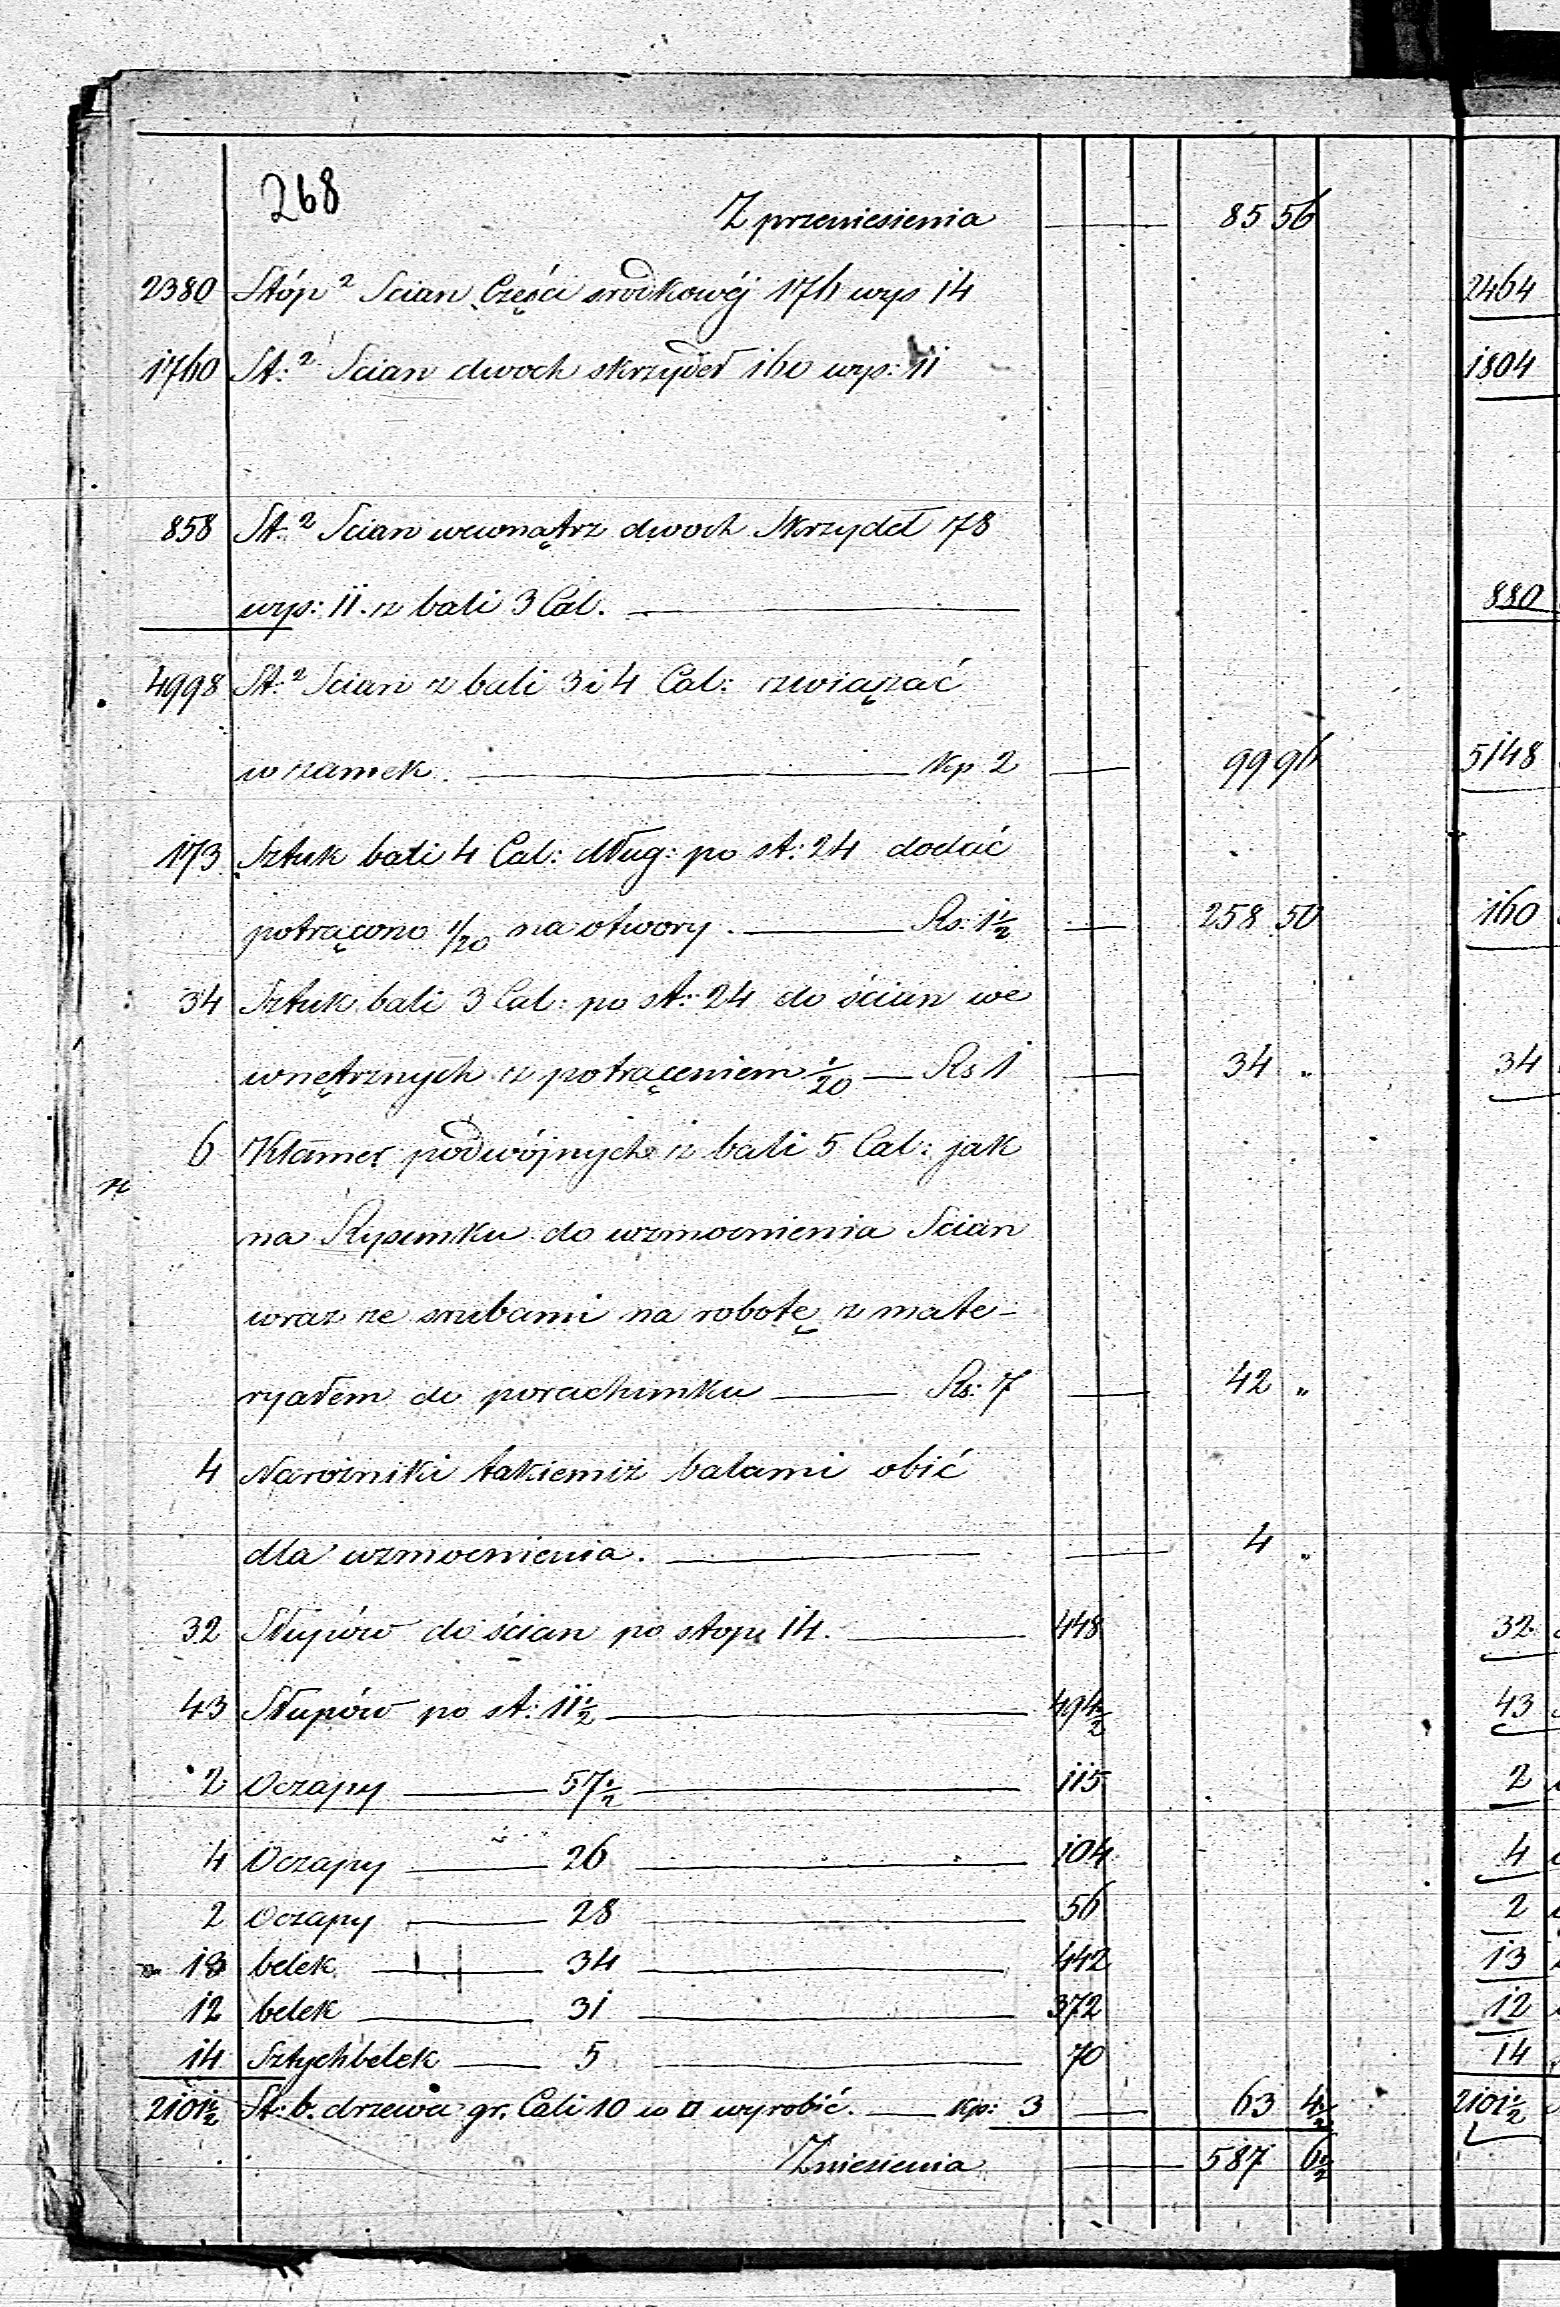 268
Z przeniesienia — 85 56
2380 Stóp² Scian Części srodkowéj 176 wys 14
1760 St:² Scian dwoch skrzydeł 160 wys: 11
858 St.² Scian wewnątrz dwoch Skrzydeł 78
wys: 11. z bali 3 Cal. —
4998 St:² Scian z bali 3 i 4 Cal: związać
w zamek. — Kp 2 — 99 96
173 Sztuk bali 4 Cal: dług: po st: 24 dodać
potrącono 1/20 na otwory. — Rs: 1½ — 258 50
34 Sztuk bali 3 Cal: po st: 24 do ścian we
wnętrznych z potrąceniem 1/20 — Rs 1 — 34 "
6 Klamer podwójnych z bali 5 Cal: jak
na Rysunku do wzmocnienia Scian
wraz ze srubami na robotę z mate-
ryałem do porachunku — Rs: 7 — 42 "
4 Narożniki takiemiż balami obić
dla wzmocnienia. — 4 "
32 Słupów do ścian po stop: 14. — 448
43 Słupów po st: 11½ — 494½
2 Oczapy — 57½ — 115
4 Oczapy — 26 — 104
2 Oczapy — 28 — 56
13 belek — 34 — 442
12 belek — 31 — 372
14 Sztychbelek — 5 — 70
2101½ St: b. drzewa gr. Cali 10 w □ wyrobić. — Kp: 3 — 63 4½
Zniesienia — 587 6½
2464
1804
880
5148
160
34
32
43
2
4
2
13
12
14
2101½